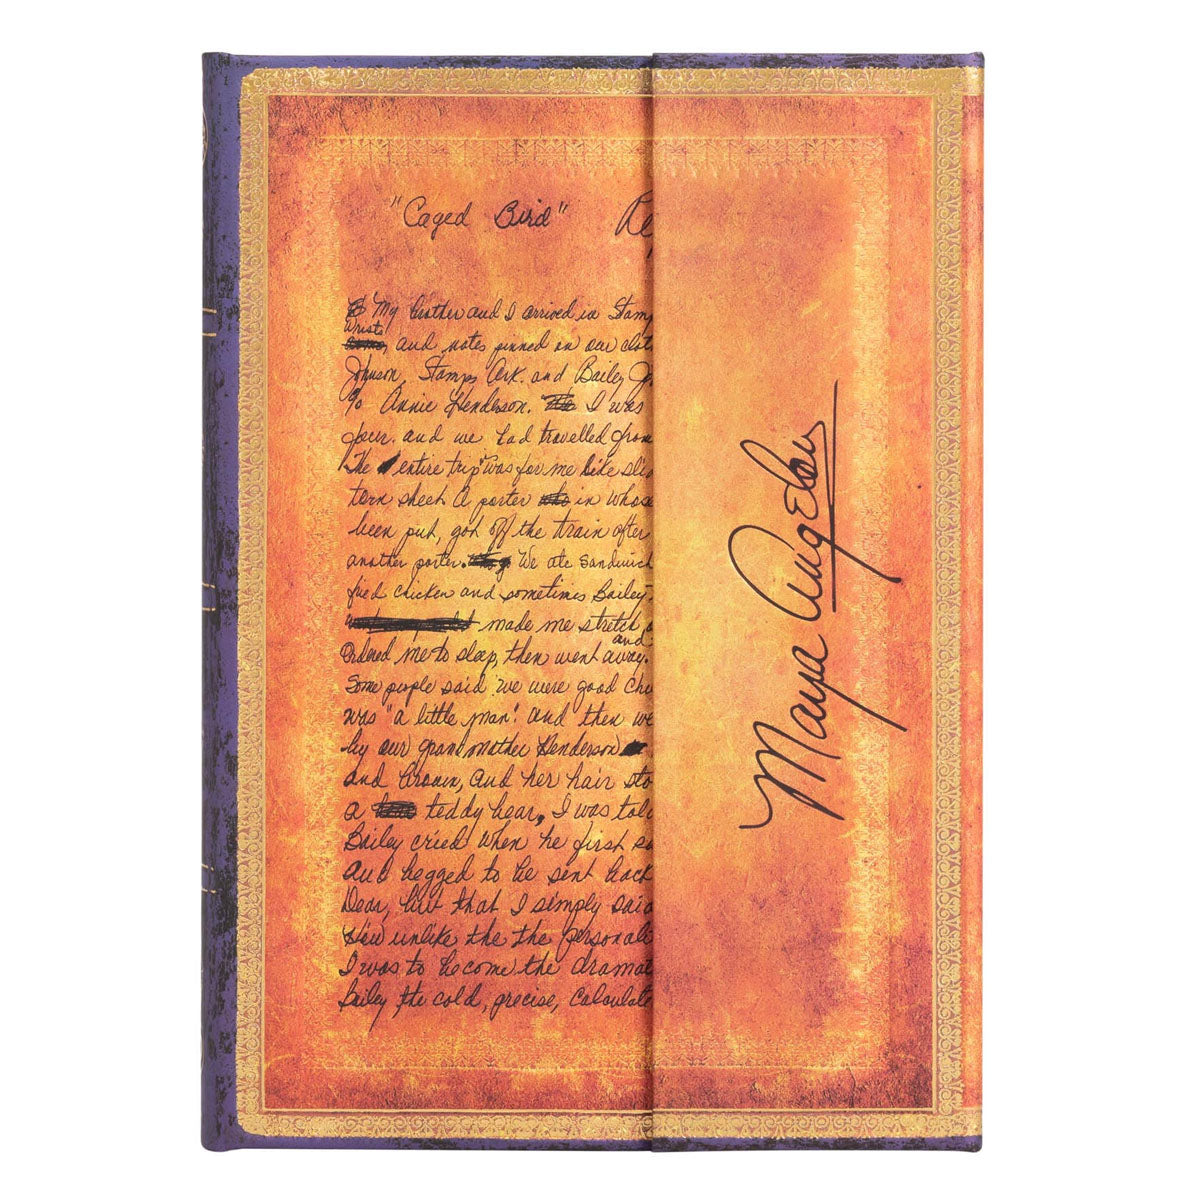 "Caged Bird" Re
My brother and I arrived in Stamp
wrists
and notes pinned on our clot
Johnson, Stamps Ark. and Bailey J
% Annie Henderson. I was
four. and we had travelled from
The entire trip was for me like sle
torn sheet A porter in whose
been put, got off the train after
another porter. We ate sandwich
fried chicken and sometimes Bailey
made me stretch
and
ordered me to sleep, then went away.
Some people said we were good chi
was "a little man". and then we
by our grandmother Henderson
and brown, and her hair sto
a teddy bear, I was told
Bailey cried when he first s
and begged to be sent back
Dear, but that I simply said
How unlike the the personali
I was to become the dramat
Bailey the cold, precise, calculate
Maya Angelou